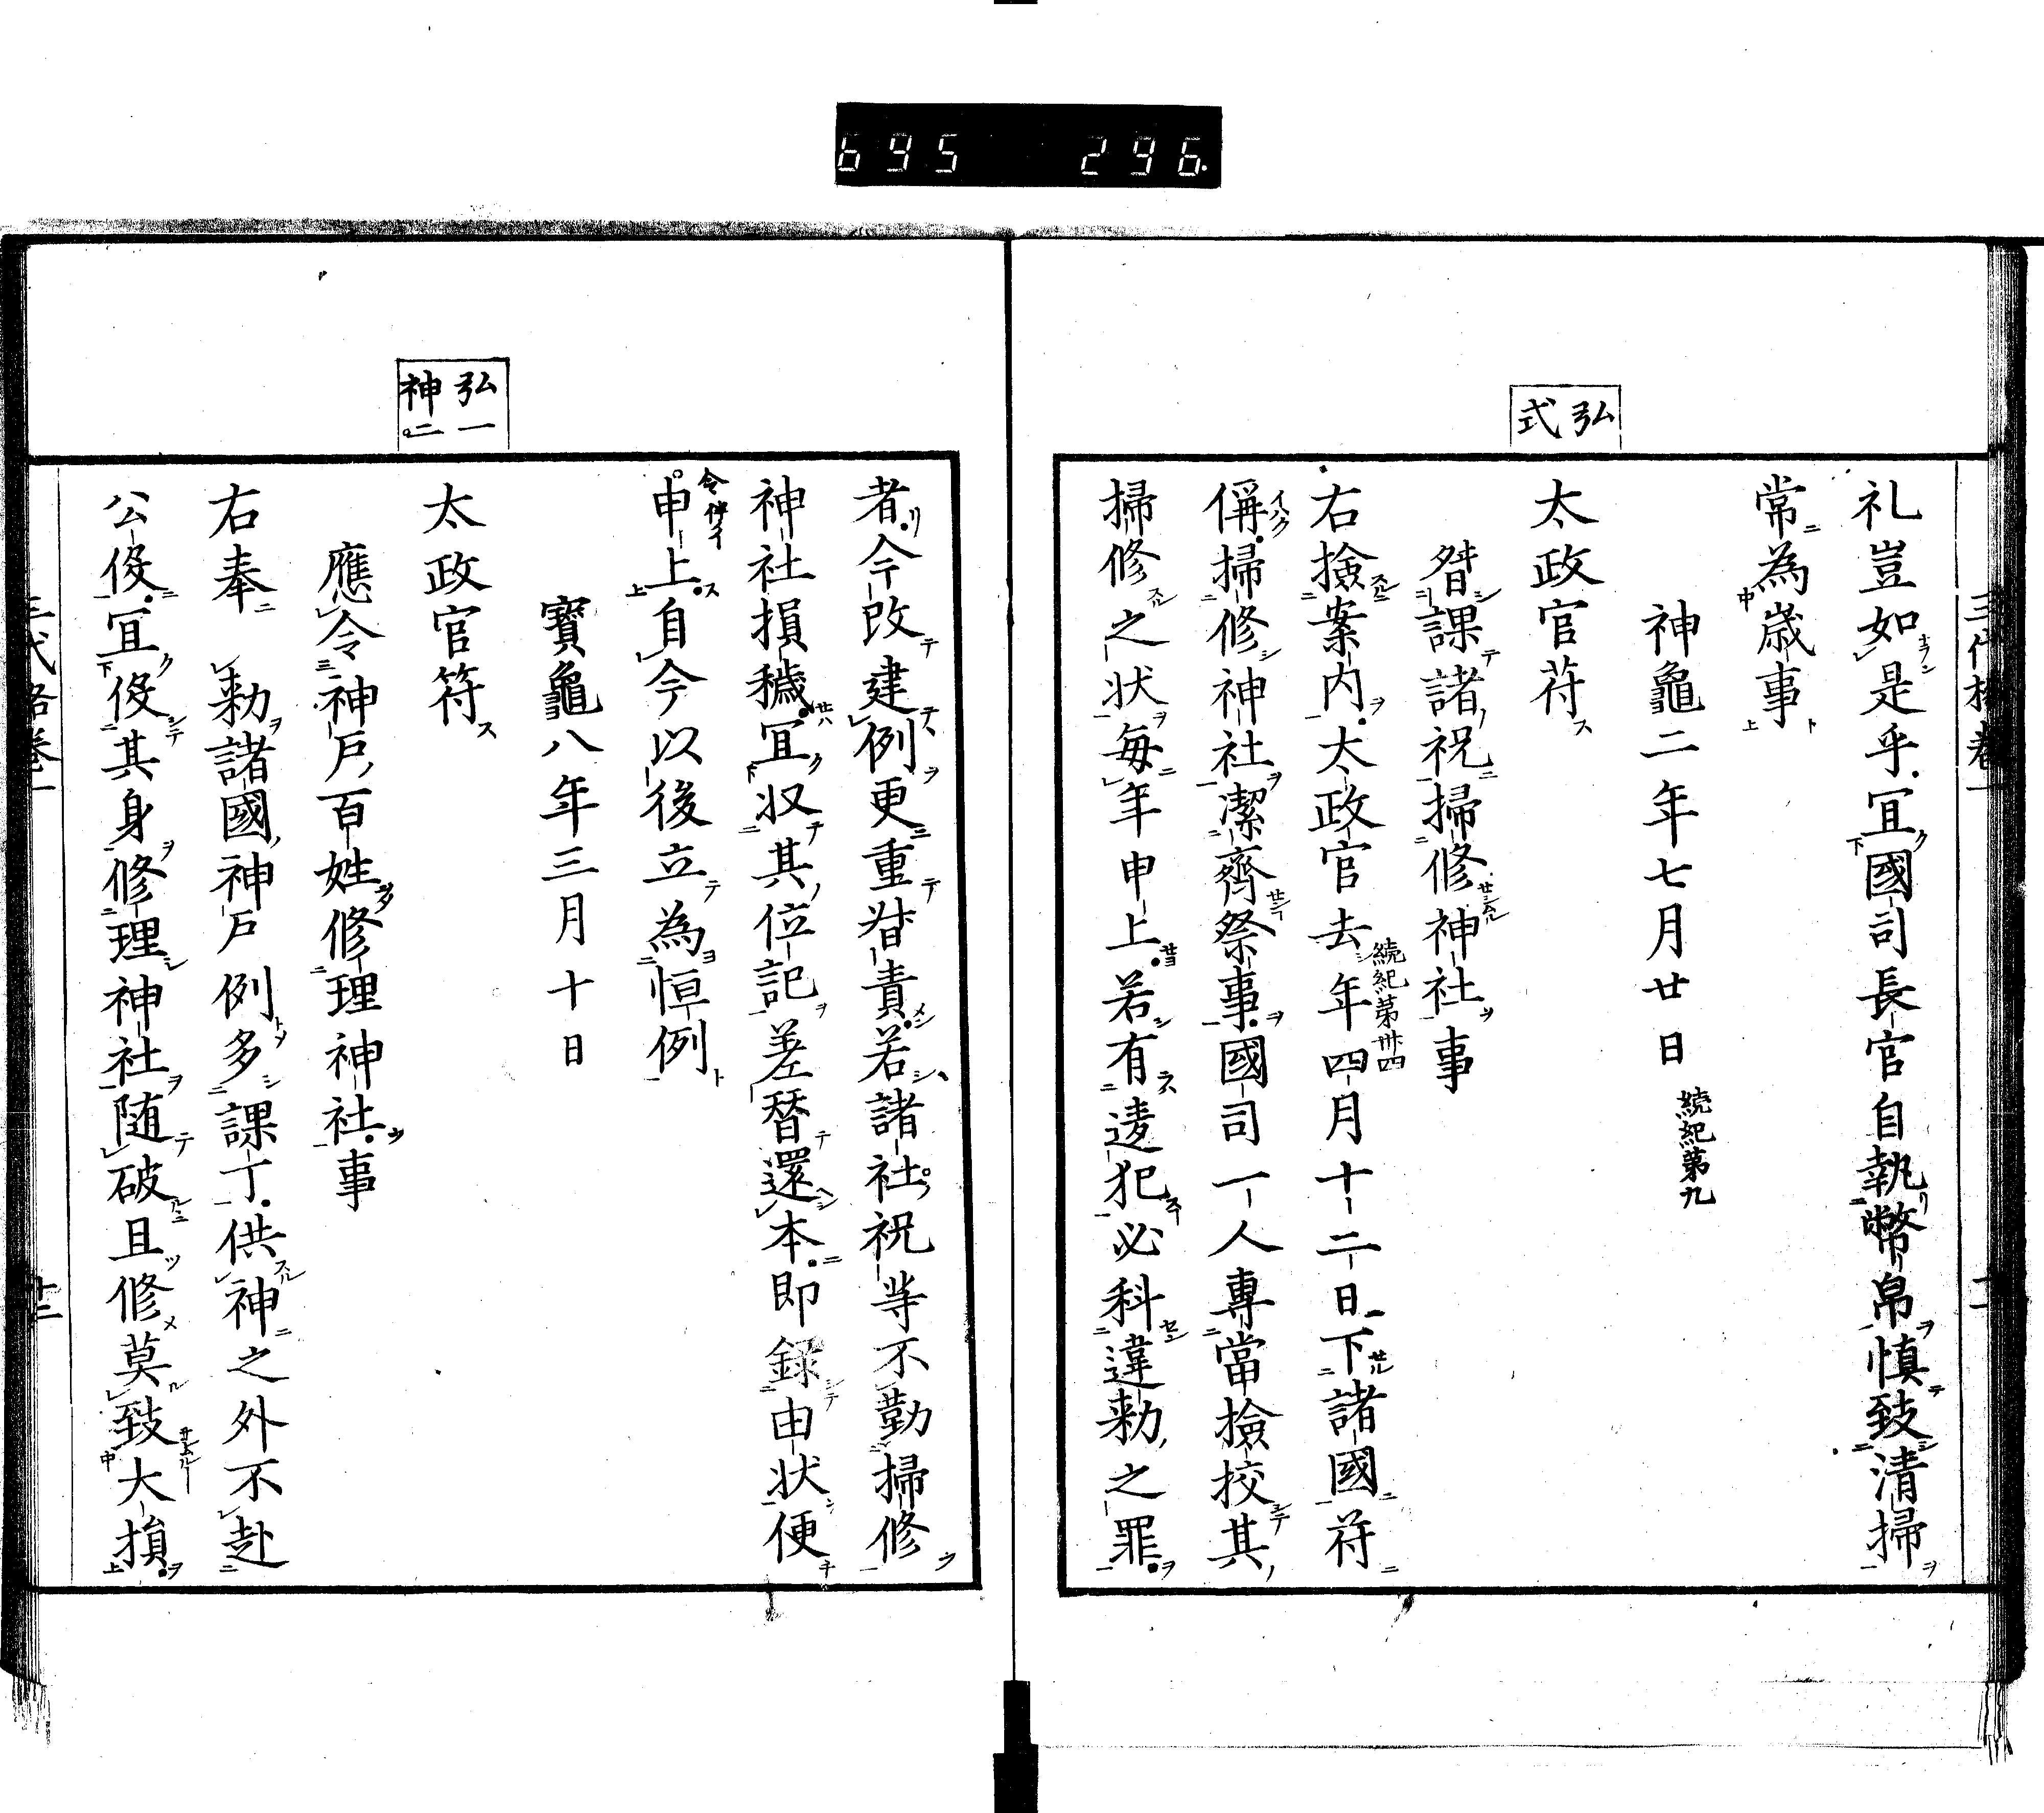 695 296.
弘
式
礼豈如是乎宜國司長官自執幣帛慎致清掃
常為歳事
神龜二年七月廿日 續紀第九
太政官苻
督課諸祝掃修神社事
右撿案内太政官去年四月十二日下諸國苻
續紀第卅四
偁掃修神社潔齊祭事國司一人專當撿挍其
掃修之状毎年申上若有違犯必科違勑之罪
者今改建例更重督責若諸社祝等不勤掃修
神社損穢宜収其位記差替還本即録由状便
申上自今以後立為恒例
寳龜八年三月十日
弘一
神二
太政官符
應令神戸百姓修理神社事
右奉 勑諸國神戸例多課丁供神之外不赴
公役宜役其身修理神社随破且修莫致大損
三代格卷一